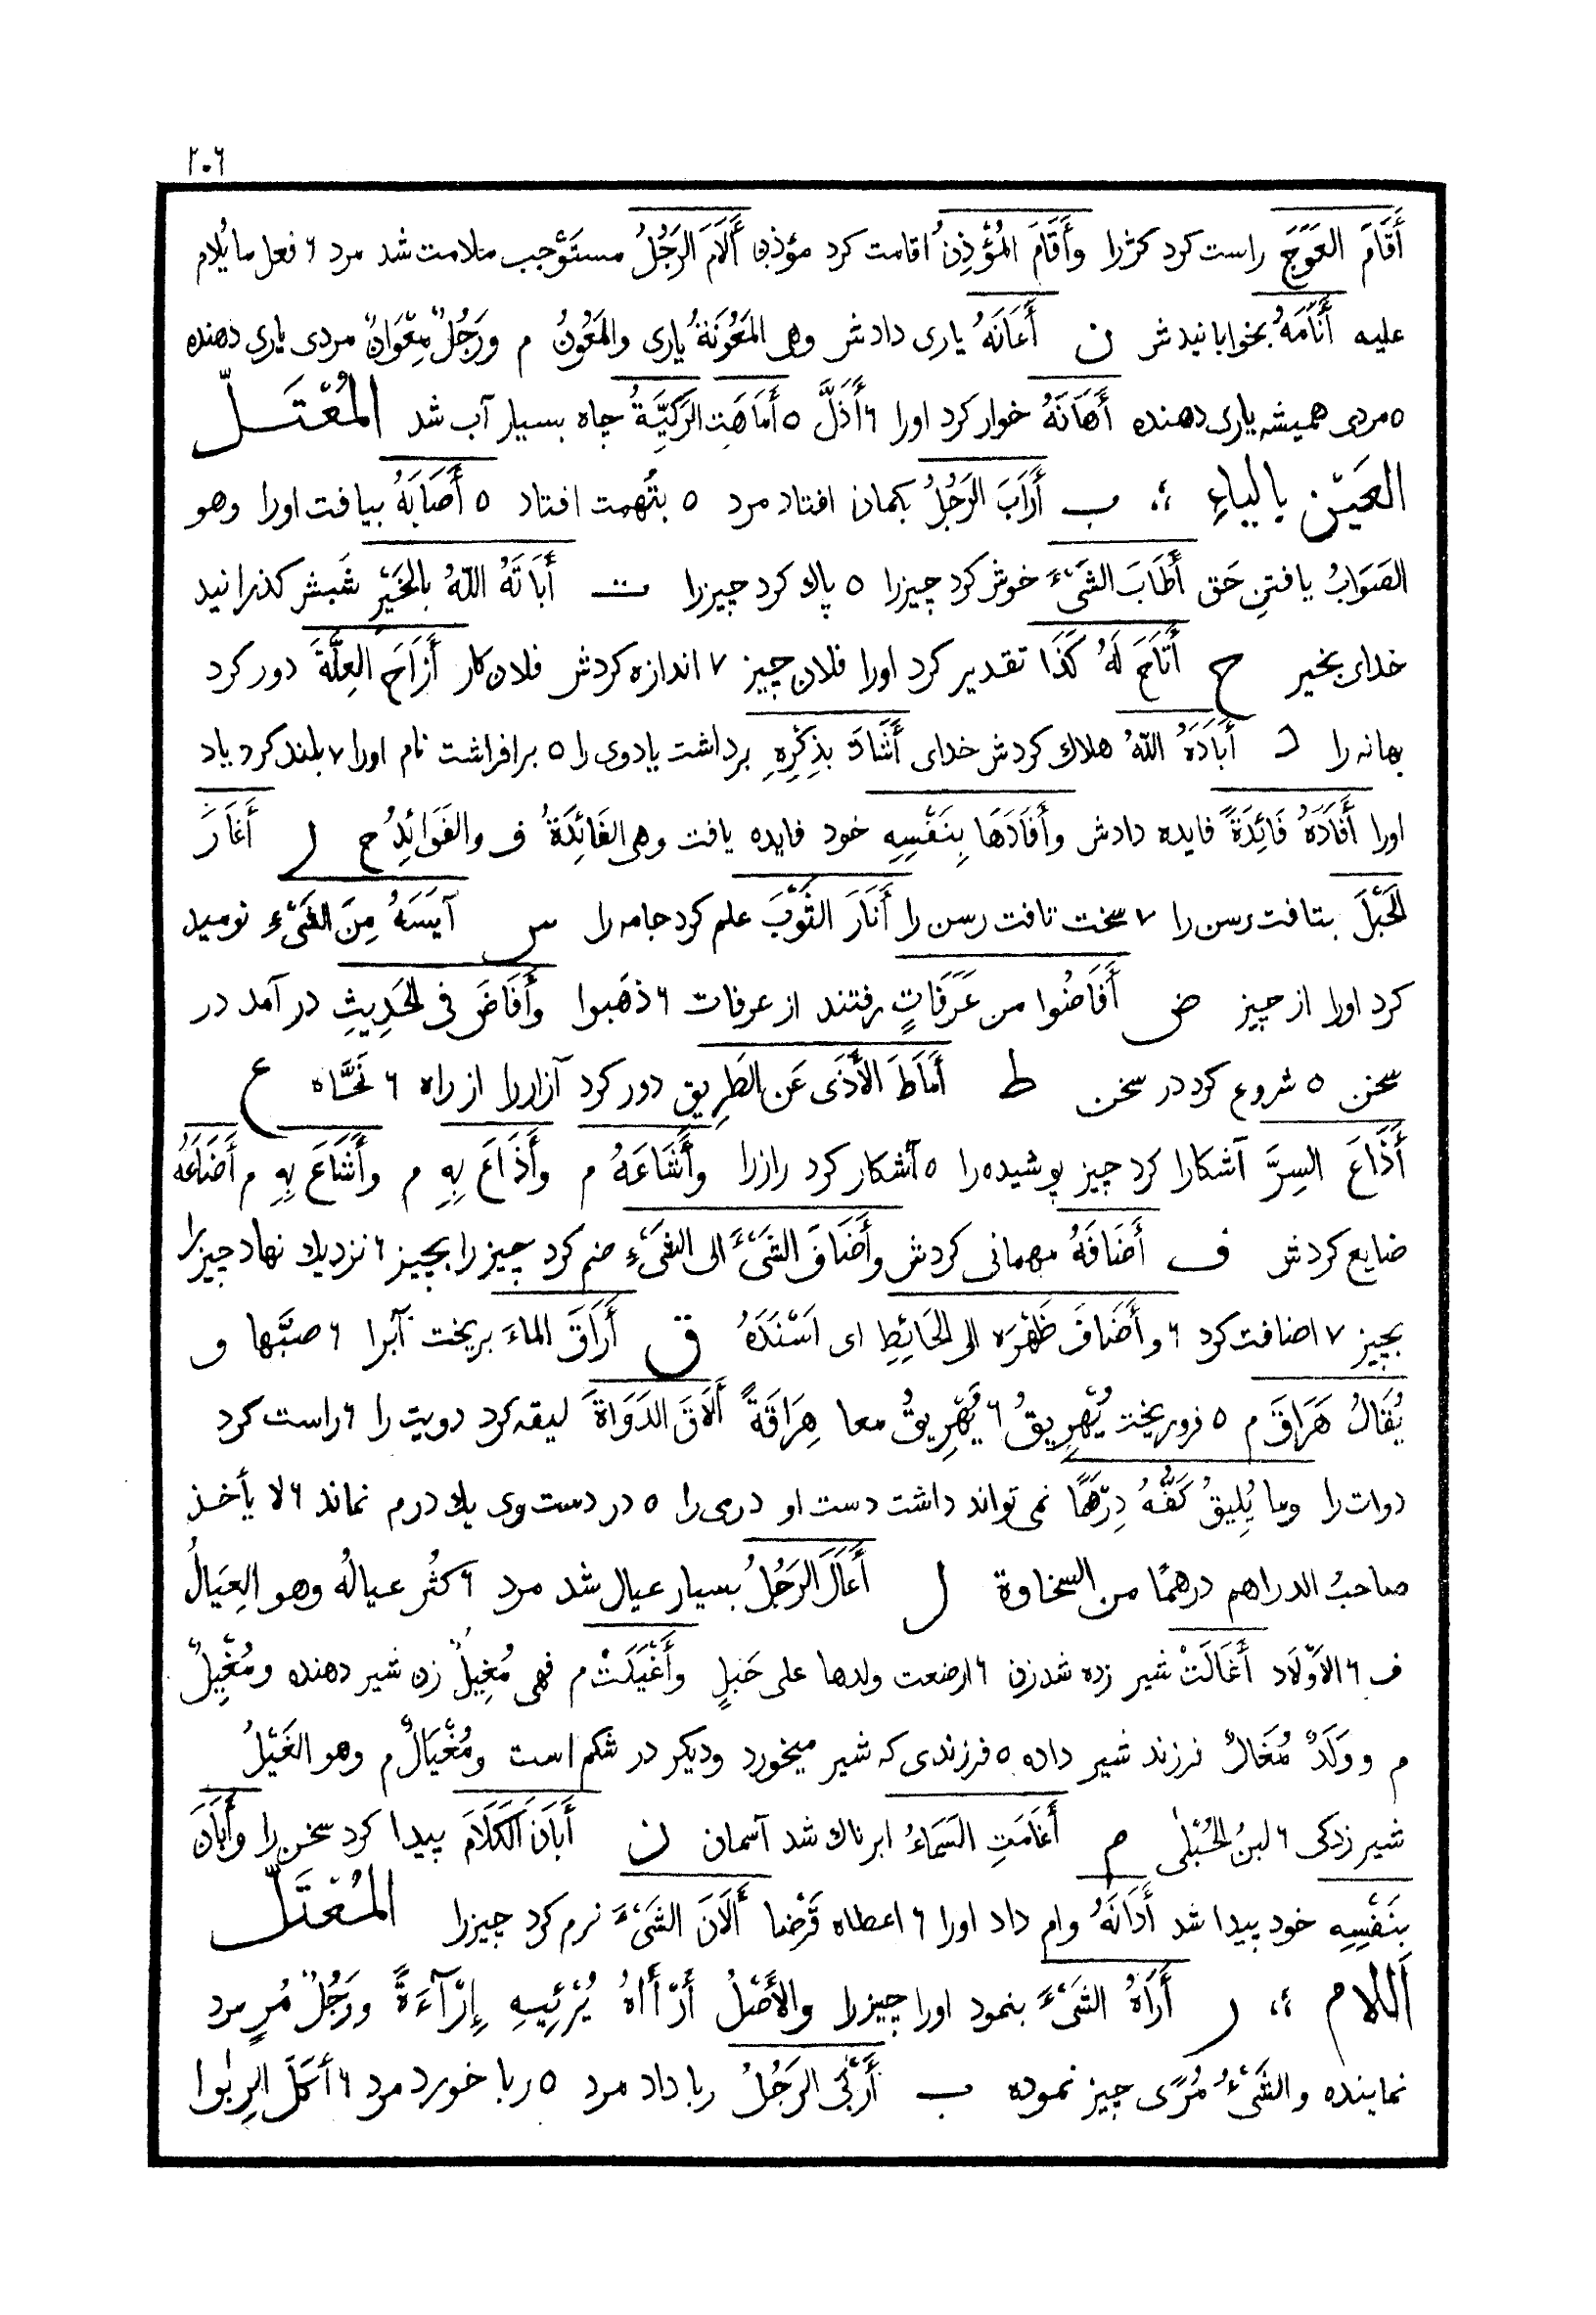 ٢٠٦
أَقَامَ العَوَجَ راست کرد کژ را وأَقَامَ المُؤَذِنُ اقامت کرد مؤذن أَلَامَ الرَجُلُ مستَوْجب ملامت شد مرد ٦ فعل ما يُلام
عليه أَنَامَهُ بخوابانیدش ن أَعَانَهُ یاری دادش وهی المَعُونَةُ یاری والمَعُونُ م ورَجُلٌ مِعْوَانٌ مردی یاری دهنده
٥ مردی همیشه یاری دهنده أَهَانَهُ خوار کرد اورا ٦ أَذَلَّ ٥ أَمَاهَتِ الرَكِيَّةُ چاه بسیار آب شد المُعْتَلّ
العَيْن بالياءِ ؛، ب أَرَابَ الرَجُلُ بکمان افتاد مرد ٥ بتُهمت افتاد ٥ أَصَابَهُ بیافت اورا وهو
الصَوَابُ یافتنِ حَق أَطَابَ الشَىْءَ خوش کرد چیزرا ٥ پاك کرد چیزرا ت أَبَاتَهُ اللّهُ بِالخَيْرِ شَبش کذرانید
خدای بخیر ح أَتَاحَ لَهُ كَذَا تقدیر کرد اورا فلان چیز ٧ اندازه کردش فلان کار أَزَاحَ العِلَّةَ دور کرد
بهانه را د أَبَادَهُ اللّهُ هلاك کردش خدای أَشَادَ بِذِكْرِهِ برداشت یادوی را ٥ برافراشت نام اورا ٧ بلند کرد یاد
اورا أَفَادَهُ فَائِدَةً فایده دادش وأَفَادَهَا بِنَفْسِهِ خود فایده یافت وهی الفَائِدَةُ ف والفَوَائِدُ ح ر أَغَارَ
الحَبْلَ بتافت رسن را ٧ سخت تافت رسن را أَنَارَ الثَوْبَ علم کرد جامه را س آيَسَهُ مِنَ الشَىْءِ نومید
کرد اورا از چیز ض أَفَاضُوا من عَرَفَاتٍ رفتند از عرفات ٦ ذهبوا وأَفَاضَ فى الحَدِيثِ در آمد در
سخن ٥ شروع کرد در سخن ط أَمَاطَ الأَذَى عَنِ الطَرِيقِ دور کرد آزار را از راه ٦ نَحَّاه ع
أَذَاعَ السِرَّ آشکارا کرد چیز پوشیده را ٥ آشکار کرد رازرا وأَشَاعَهُ م وأَذَاعَ بِهِ م وأَشَاعَ بِهِ م أَضَاعَهُ
ضایع کردش ف أَضَافَهُ مهمانی کردش وأَضَافَ الشَىْءَ الى الشَىْءِ ضم کرد چیز را بچیز ٦ نزدیك نهاد چیزرا
بچیز ٧ اضافت کرد ٦ وأَضَافَ ظَهْرَه الى الحَائِطِ ای اَسْنَدَهُ ق أَرَاقَ الماءَ بریخت آبرا ٦ صبَّها و
يُقَالُ هَرَاقَ م ٥ فروریخت يُهْرِيقُ ٦ يُهَرِيقُ معا هِرَاقَةً أَلَاقَ الدَوَاةَ لیقه کرد دویت را ٦ راست کرد
دوات را وما يُلِيقُ كَفُّهُ دِرْهَمًا نمی تواند داشت دست او درمی را ٥ در دست وی یك درم نماند ٦ لا يأخذ
صاحبُ الدراهم درهمًا من السخاوة ل أَعَالَ الرَجُلُ بسیار عیال شد مرد ٦ کثُر عيالُه وهو العِيَالُ
ف ٦ الأَوْلَاد أَغَالَتْ شیر زده شد زن ٦ ارضعت ولدها على حَبلٍ وأَغْيَلَتْ م فهى مُغِيلٌ زن شیر دهنده ومُغْيِلٌ
م ووَلَدٌ مُغَالٌ فرزند شیر داده ٥ فرزندی که شیر میخورد ودیکر در شکم است ومُغْيَالٌ م وهو الغَيْلُ
شیر زدکی ٦ لبنُ الحُبْلٰى م أَغَامَتِ السَمَاءُ ابرناك شد آسمان ن أَبَانَ الكَلَامَ پیدا کرد سخن را وأَبَانَ
بِنَفْسِهِ خود پیدا شد أَدَانَهُ وام داد اورا ٦ اعطاه قَرْضا أَلَانَ الشَىْءَ نرم کرد چیزرا المُعْتَلّ
اَللام ؛، ر أَرَاهُ الشَىْءَ بنمود اورا چیزرا والأَصْلُ أَرْأَاهُ يُرْئِيهِ إِرْآءَةً ورَجُلٌ مُرٍ مرد
نماینده والشَىْءُ مُرًى چیز نموده ب أَرْبَى الرَجُلُ ربا داد مرد ٥ ربا خورد مرد ٦ أَكَلَ الرِبٰوا